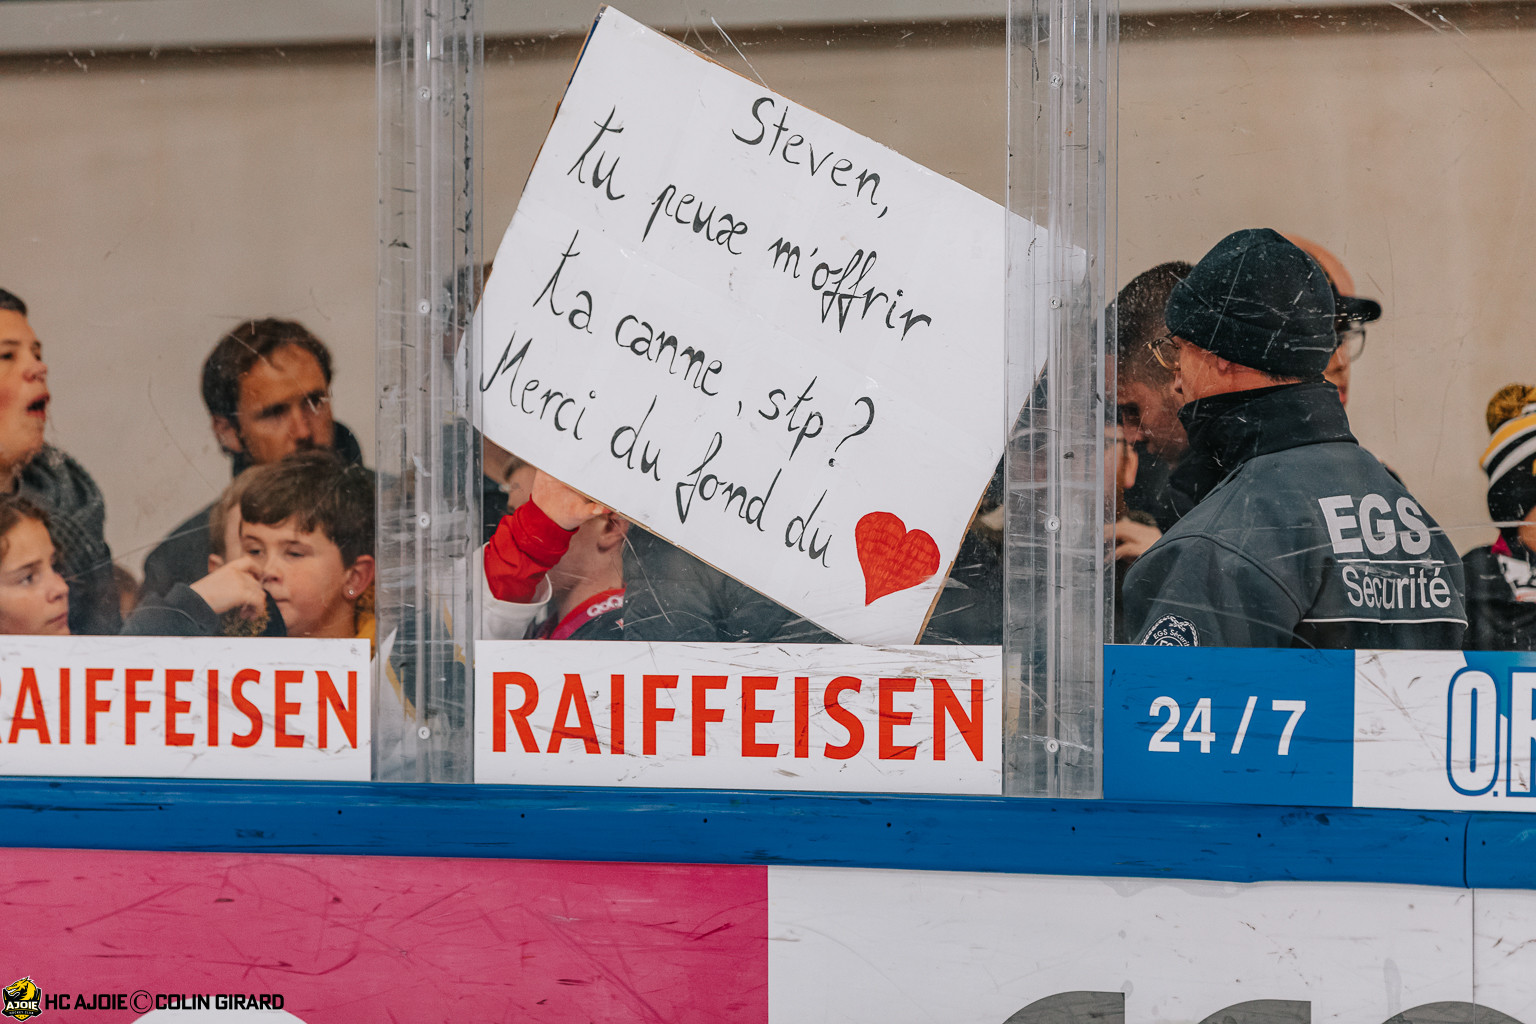 Steven,
tu peux m'offrir
ta canne, stp?
Merci du fond du
RAIFFEISEN
RAIFFEISEN
EGS
Sécurité
24/7
AJOIE
HC AJOIE © COLIN GIRARD